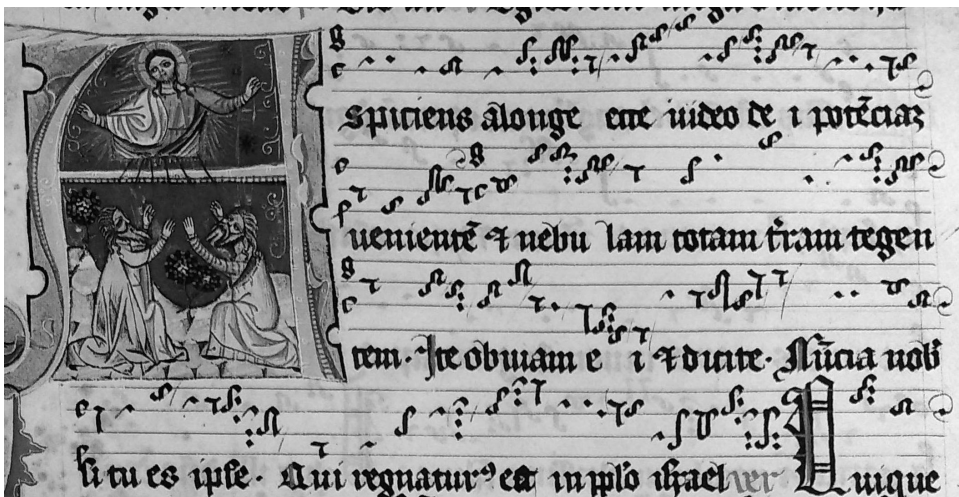 Aspiciens alonge ecce uideo dei potēciaꝫ
uenientē ⁊ nebulam totam t̄ram tegen
tem. Ite obuiam ei ⁊ dicite. Nūcia nob̄
si tu es ipse. Qui regnaturꝰ es in ppl̄o isrl̄ael ver Quique